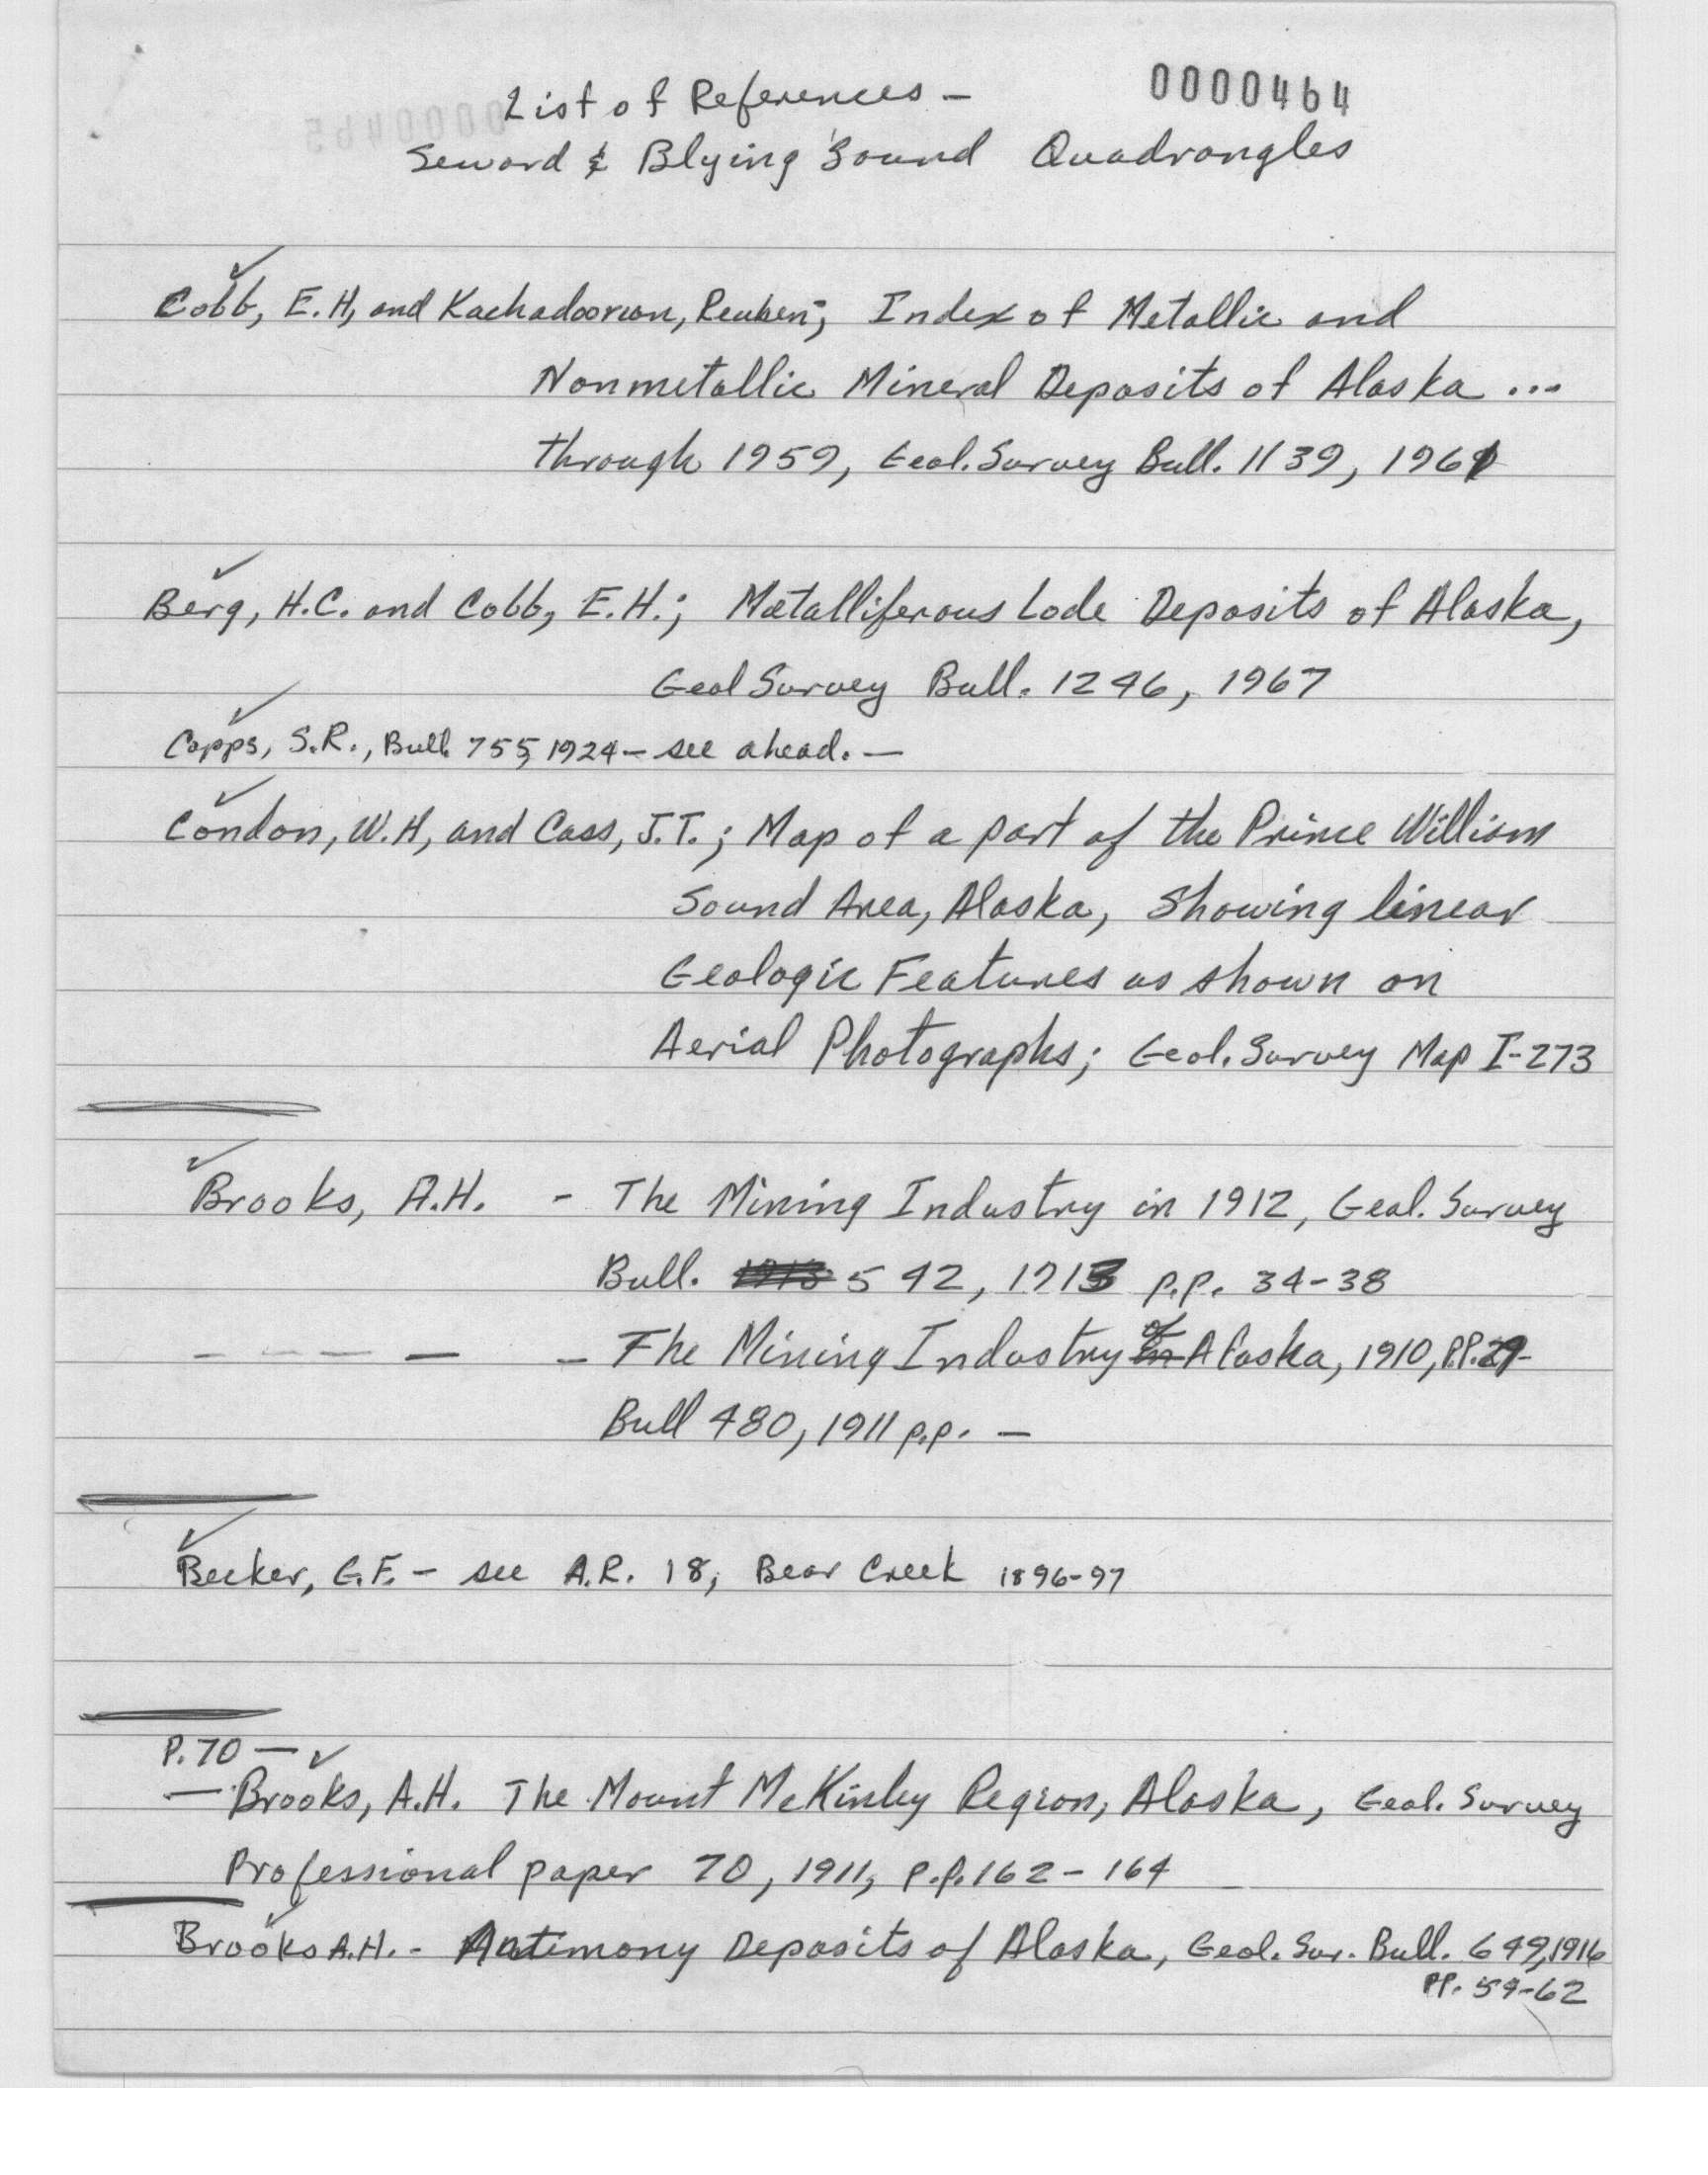 List of References – 0000464
Seward & Blying Sound Quadrangles
Cobb, E.H, and Kachadoorian, Reuben; Index of Metallic and
Nonmetallic Mineral Deposits of Alaska ...
through 1959, Geol. Survey Bull. 1139, 1961
Berg, H.C. and Cobb, E.H.; Metalliferous Lode Deposits of Alaska,
Geol Survey Bull. 1246, 1967
Capps, S.R., Bull. 755, 1924 – see ahead. –
Condon, W.H, and Cass, J.T.; Map of a part of the Prince William
Sound Area, Alaska, Showing linear
Geologic Features as shown on
Aerial Photographs; Geol. Survey Map I-273
Brooks, A.H. - The Mining Industry in 1912, Geol. Survey
Bull. 542, 1913 p.p. 34-38
– – – – – The Mining Industry of Alaska, 1910, P.P. 29-
Bull 480, 1911 p.p. –
Becker, G.F. - see A.R. 18, Bear Creek 1896-97
P. 70 –
– Brooks, A.H. The Mount McKinley Region, Alaska, Geol. Survey
Professional paper 70, 1911, p.p. 162-164
Brooks A.H. - Antimony Deposits of Alaska, Geol. Sur. Bull. 649, 1916
PP. 59-62